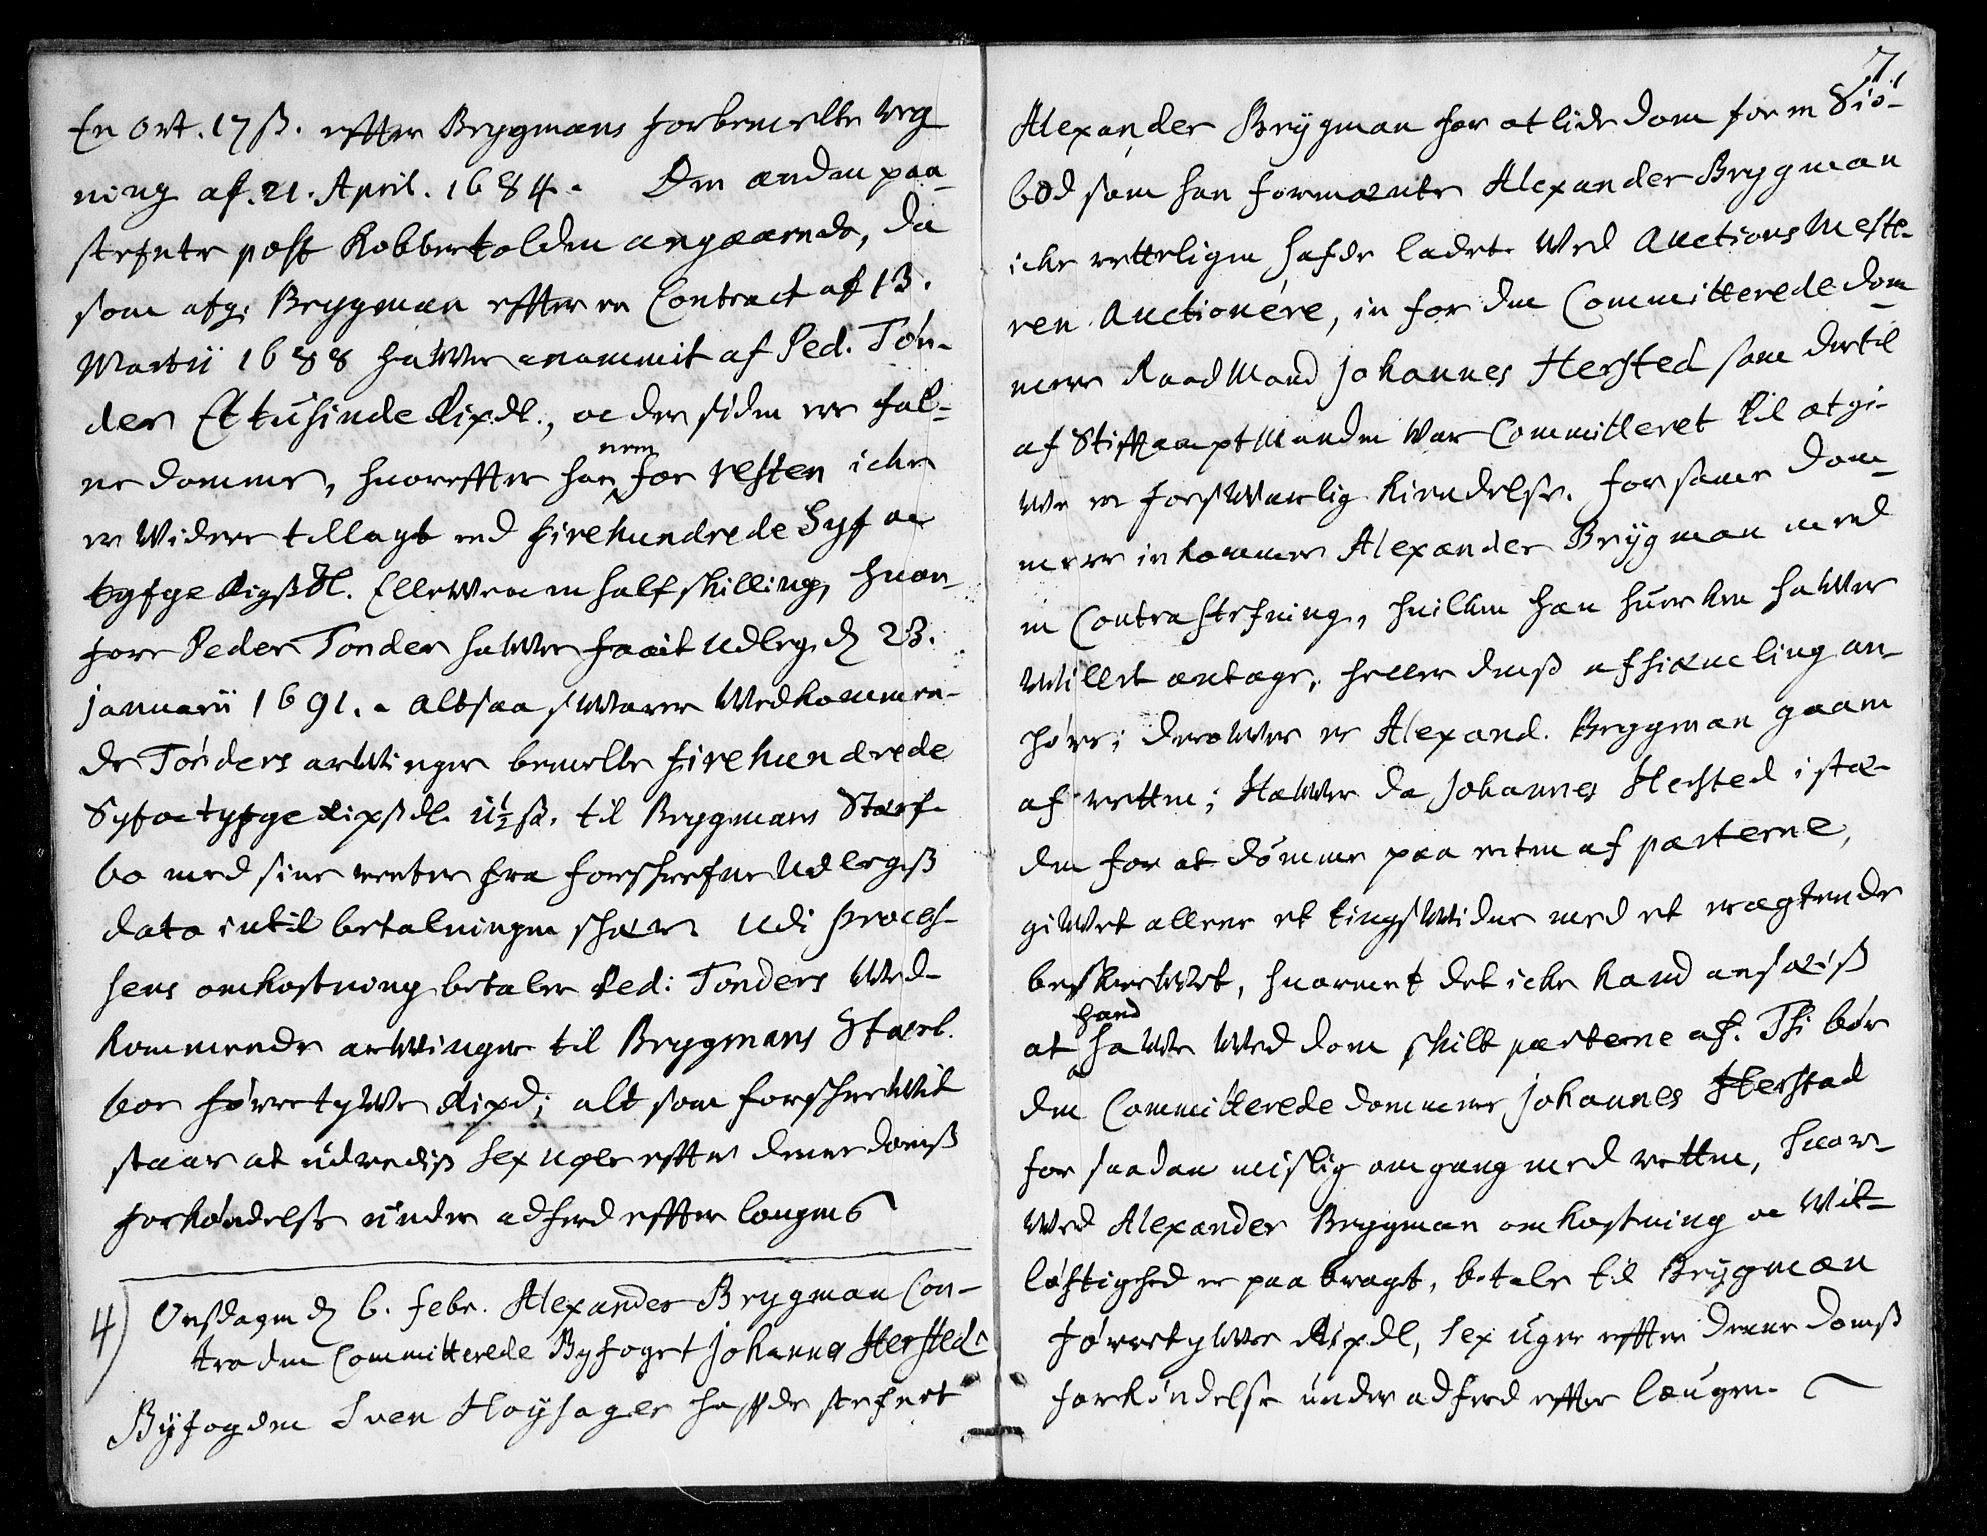 En ort. 17 ß. effter Brygmans forbemelte reg
ning af. 21. April. 1684. Den anden paa-
stefnte post Kobbertolden angaaende, da
som afg: Brygman effter en Contract af 13.
Martii 1688 hafver anammit af Ped. Tøn-
der Et tusinde Rixdl., oc der siden er fal-
ne domme, huoreffter han for resten icke
nem
er widere tillagt end fire hundrede Syf oc
tyfge Rigßdl. Ellewe oc en half skilling, huor-
fore Peder Tonder hafwer faait udleg d 23.
januarii 1691. altsaa swarer Wedkommen-
de Tønders arwinger bemelte fire hundrede
Syf oc tyfge Rixßdl. 11½ ß. til Brygmans Sterf-
bo med sine renter fra forschrefne Udlegß
dato intil betalningen skeer. Udi Proces-
sens omkostning betaler Ped: Tonders Wed-
kommende arwinger til Brygmans Sterf-
boe førretywe Rixd; alt som forschrewit
staar at udrediß Sex uger effter denne domß
forkøndelse under adferd effter lougen
4) Onsdagen d 6. Febr. Alexander Brygman Con-
tra den Committerede Byfoget Johannes Hersted
Byfogden Sven Høysager hafde stefnet
7.
Alexander Brygman for at lide dom for en Siö-
bod som han formænte Alexander Brygman
icke retteligen hafde ladet Wed Auctions Meste-
ren Auctionere, in for den Committerede dom
mere Raadmand Johannes Hersted som dertil
af Stiftamptmanden War Committeret til at gi-
we en forswarlig kiendelse. for samme dom-
mere inkommer Alexander Brygman med
en Contrastefning, huilken han huerken hafwer
willet antage, heller denß afhiemling an-
høre; derowver er Alexand. Brygman gaaen
af retten; Hafwer da Johannes Hersted i stæ-
den for at dømme paa en ten af parterne,
giwet allene et tingswidne med et wægtende
beskrewet, huormet det icke kand ansæiß
at hafwe wed dom skilt parterne af. Thi bør
hand
den Committerede dommere Johannes Herstad
for saadan mislig omgang med retten, huor-
wed Alexander Brygman omkostning oc Wit-
løftighed er paabragt, betale til Brygman
førretywe Rixdl, sex uger effter denne domß
forkøndelse under adferd effter laugen.